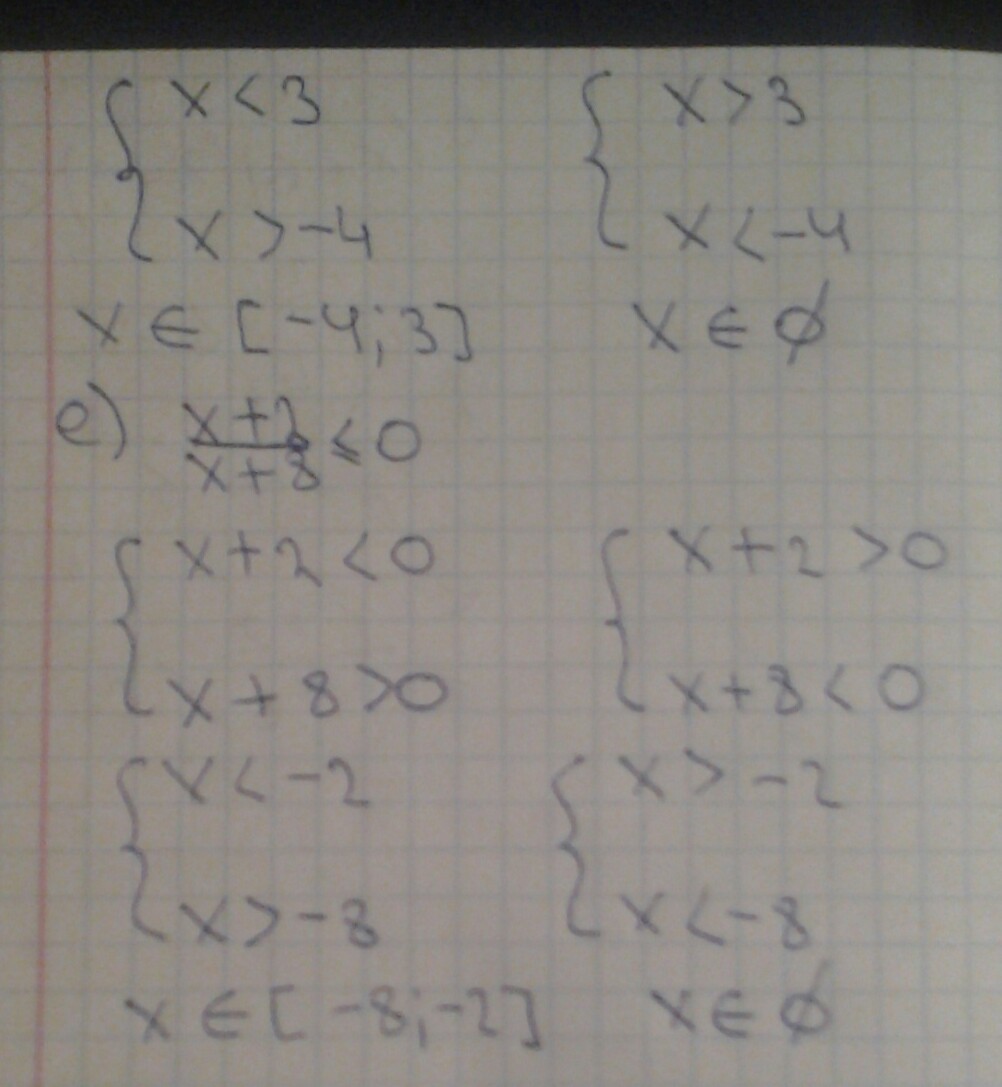 { x < 3    { x > 3
x > -4    x < -4
x ∈ [-4; 3]    x ∈ ∅
e) x+2
x+8 ≤ 0
{ x+2 < 0    { x+2 > 0
x+8 > 0    x+8 < 0
{ x < -2    { x > -2
x > -8    x < -8
x ∈ [-8; -2]    x ∈ ∅